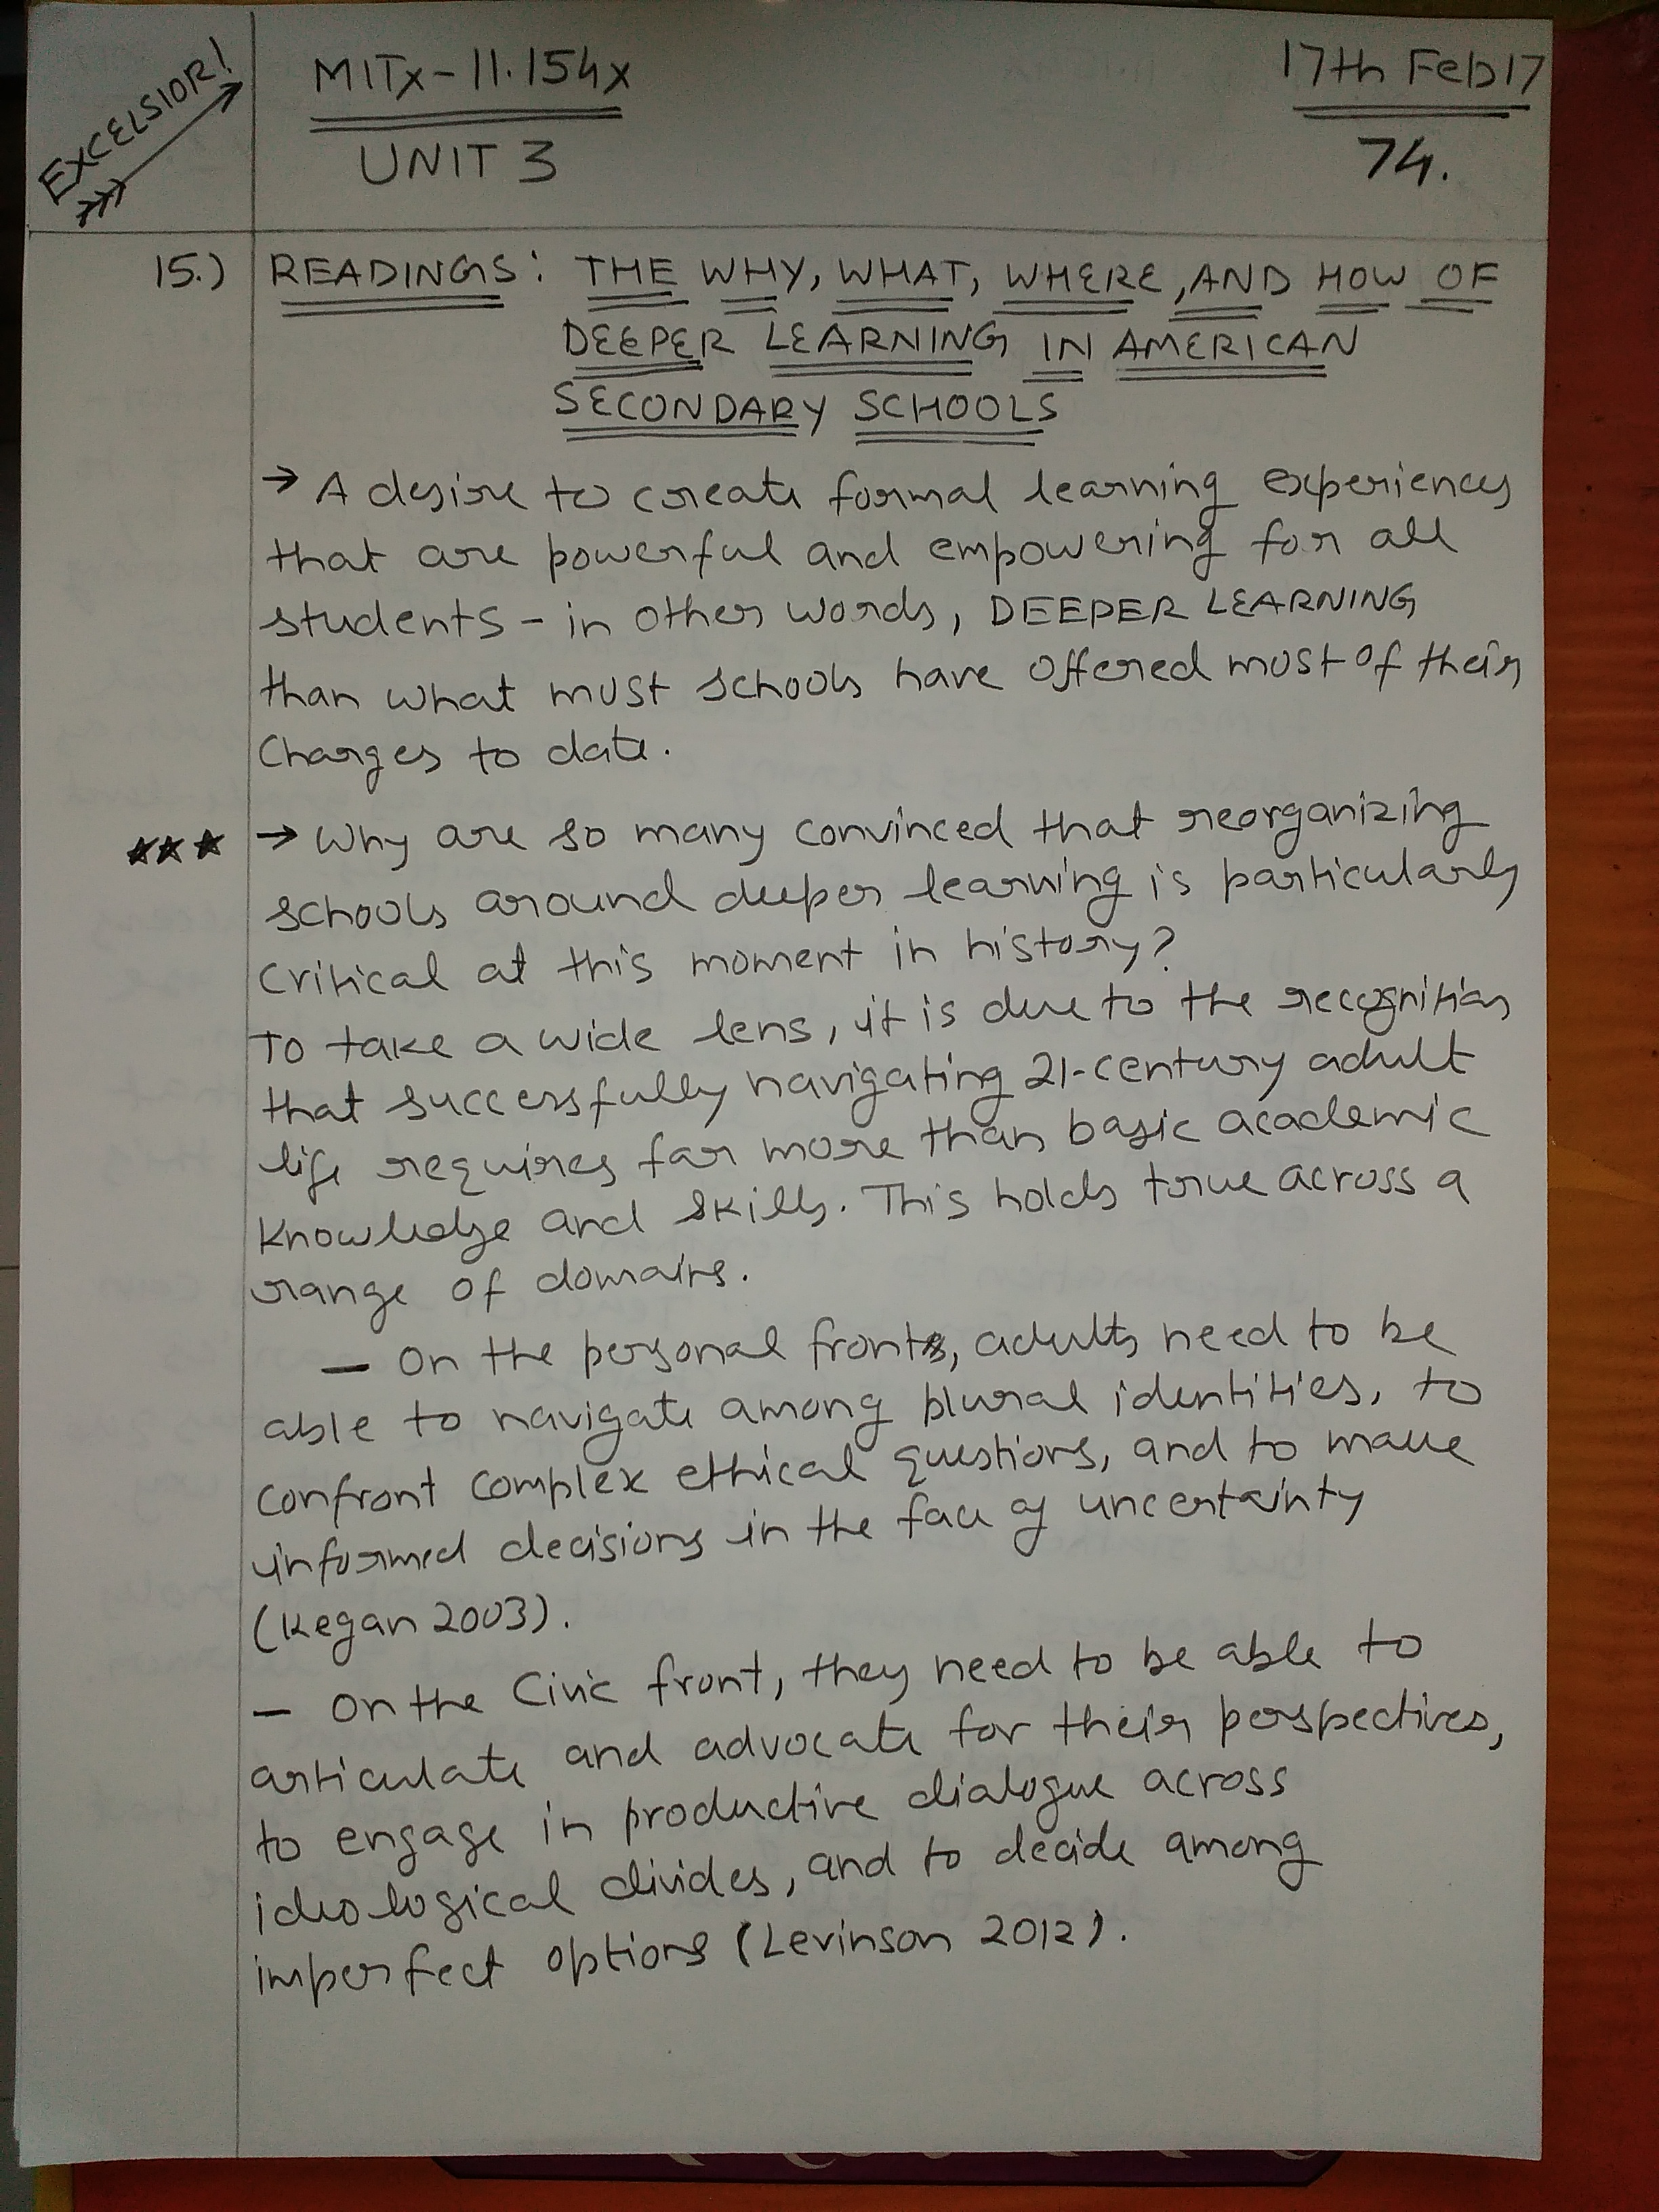 EXCELSIOR!
MITx-11.154x
17th Feb17
UNIT 3
74.
15.) READINGS: THE WHY, WHAT, WHERE, AND HOW OF
DEEPER LEARNING IN AMERICAN
SECONDARY SCHOOLS
→ A desire to create formal learning experiences
that are powerful and empowering for all
students - in other words, DEEPER LEARNING
than what most schools have offered most of their
Charges to date.
★★★ → Why are so many convinced that reorganizing
schools around deeper learning is particularly
critical at this moment in history?
To take a wide lens, it is due to the recognition
that successfully navigating 21-century adult
life requires far more than basic academic
knowledge and skills. This holds true across a
range of domains.
— On the personal front, adults need to be
able to navigate among plural identities, to
confront complex ethical questions, and to make
informed decisions in the face of uncertainty
(Kegan 2003).
— On the Civic front, they need to be able to
articulate and advocate for their perspectives,
to engage in productive dialogue across
ideological divides, and to decide among
imperfect options (Levinson 2012).